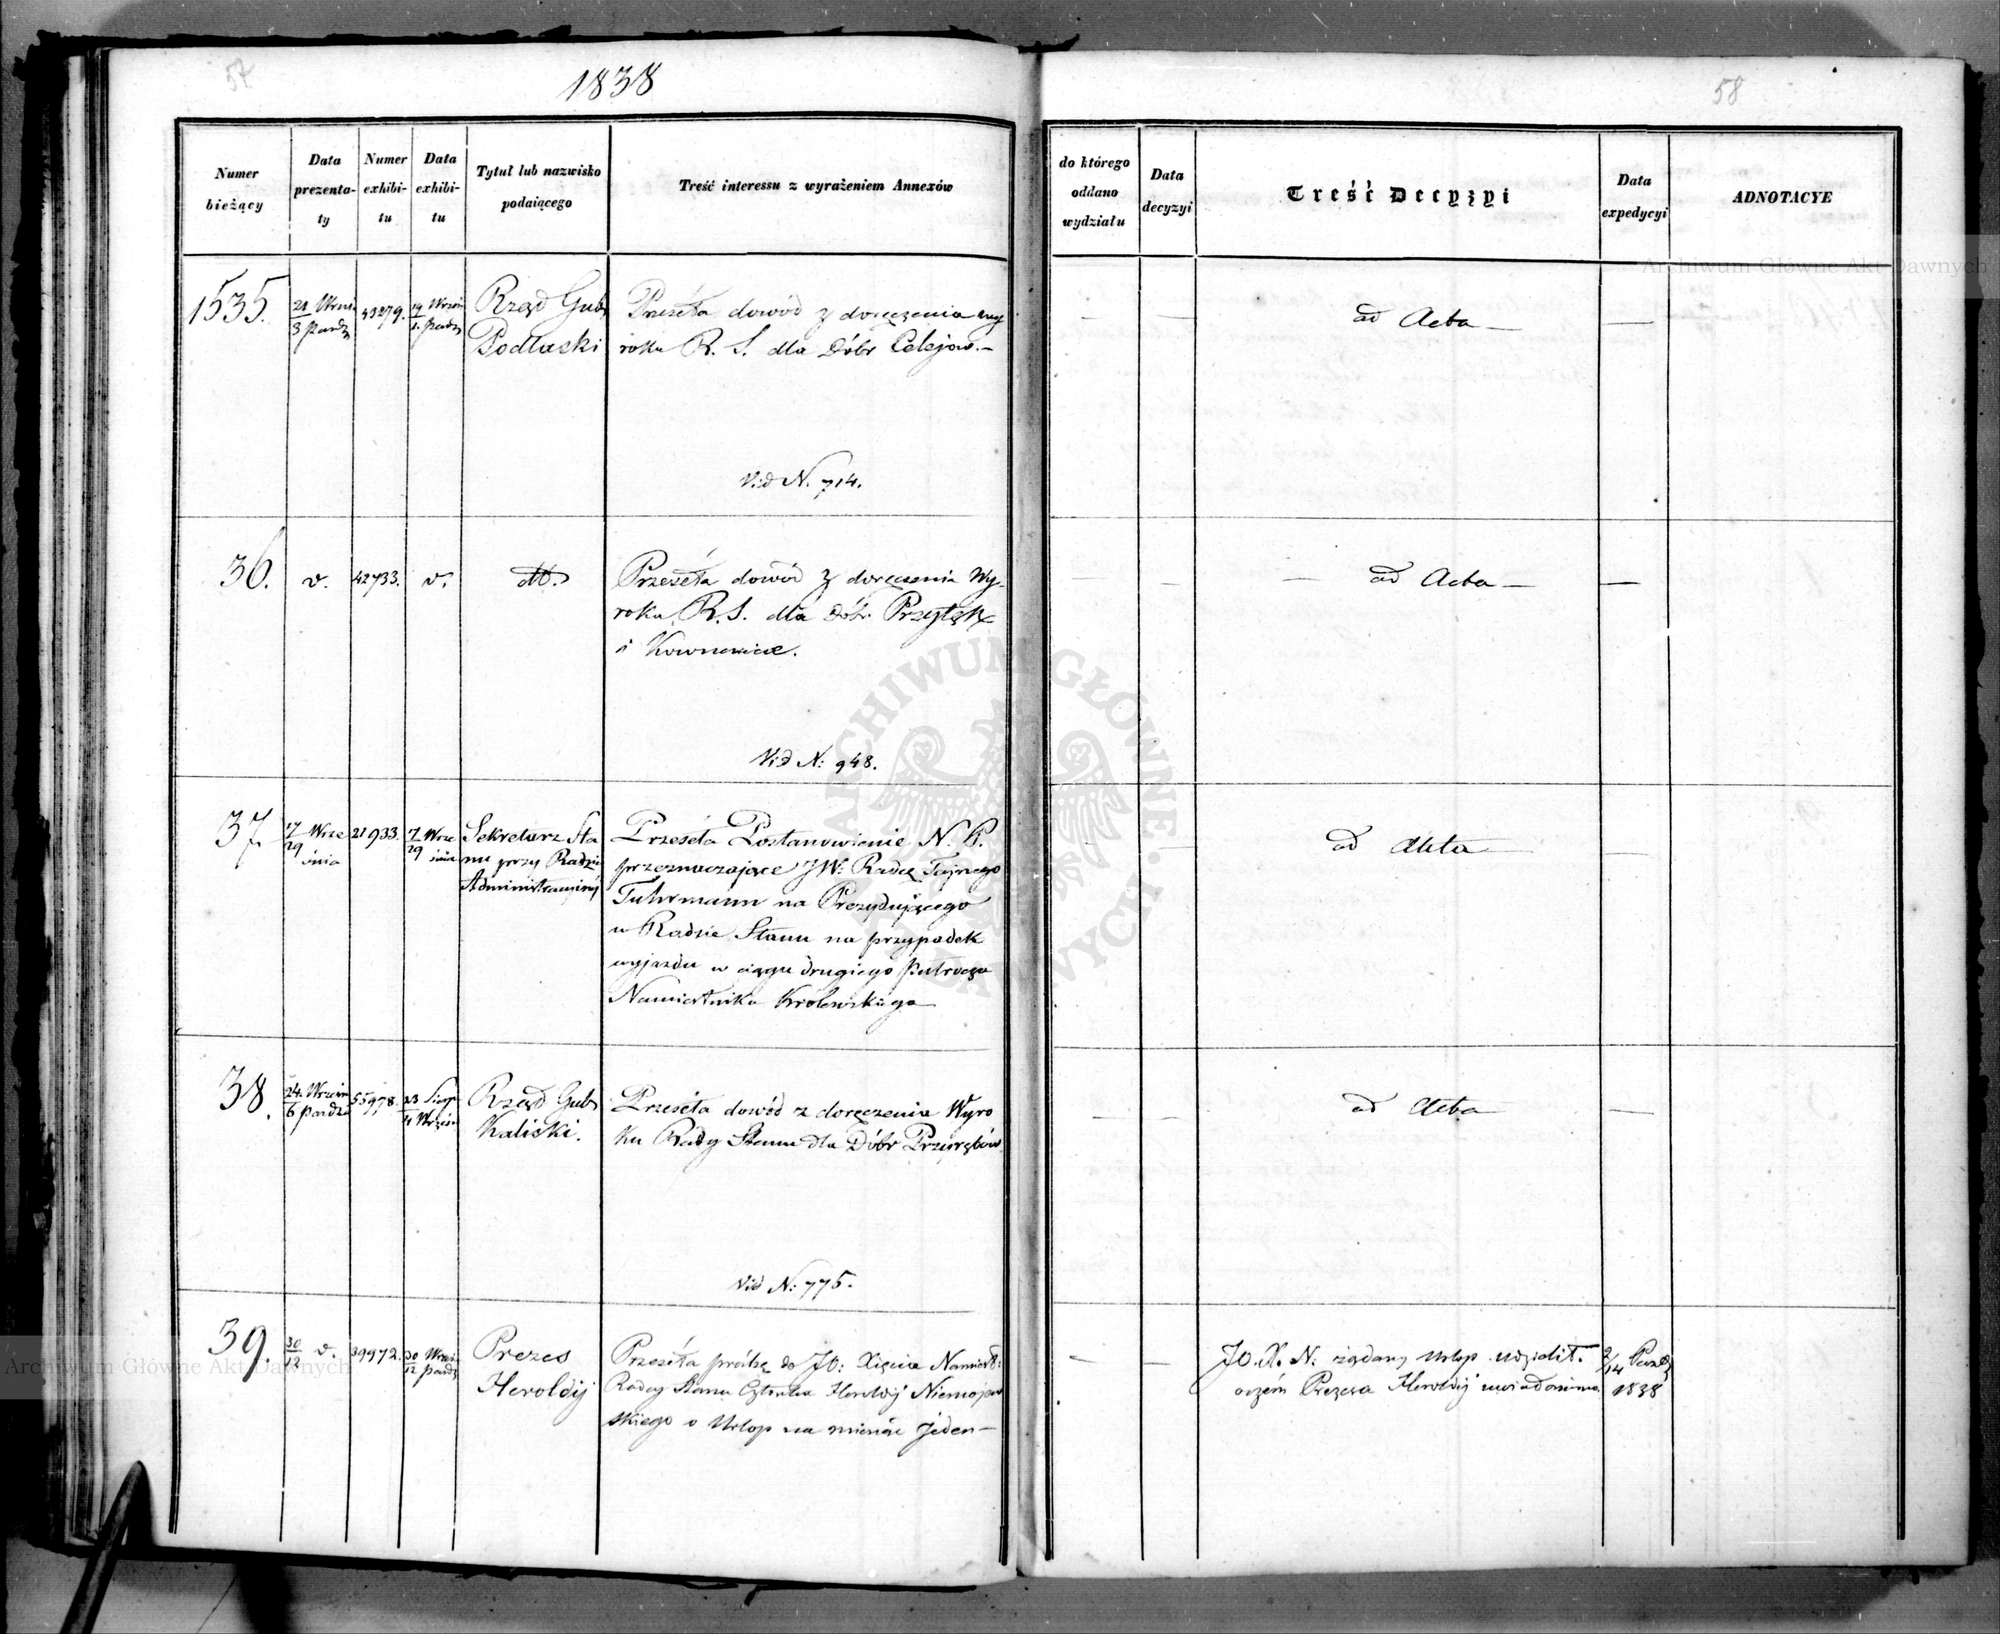 57
1838
58
Numer
bieżący
Data
prezenta-
ty
Numer
exhibi-
tu
Data
exhibi-
tu
Tytuł lub nazwisko
podaiącego
Treść interessu z wyrażeniem Annexów
do którego
oddano
wydziału
Data
decyzyi
Treść Decyzyi
Data
expedycyi
ADNOTACYE
1535.
21 Wrześ
3 Paźdz
43279.
19 Wrześ
1. Paźdz
Rząd Gub
Podlaski
Przeséła dowód z doręczenia wy
roku R. S. dla Dóbr Celejow.—
Vid N. 714.
— — ad Acta — —
36.
v.
42733.
v.
dtto.
Przeséła dowód z doręczenia Wy-
roku R. S. dla Dóbr
i
Vid N: 948.
— — ad Acta — —
37.
17 Wrze
29 śnia
21933.
17 Wrze
29 śnia
Sekretarz Sta
nu przy Radzie
Administracyjnéj
Przeséła Postanowienie N. P.
przeznaczające JW: Radcę Tajnego
Fuhrmann na Prezydującego
w Radzie Stanu na przypadek
wyjazdu w ciągu drugiego Półrocza
Namiestnika Królewskiego —
— — ad Akta — —
38.
24. Wrześn
6 Paźdz
55978.
23 Sierp
4 Wrześn
Rząd Gub
Kaliski.
Przeséła dowód z doręczenia Wyro
ku Rady Stanu dla Dóbr Przyrębów
Vid N: 775.
— — ad Acta — —
39.
30
12 v.
39972.
30 Wrześ
12 Paźdz
Prezes
Heroldyi
Przeséła prośbę do JO: Xięcia Namiest:
Radcy Stanu Członka Heroldyi Niemojew
skiego o Urlop na miesiąc jeden —
— —
JO. X. N: żądany Urlop udzielił.
oczém Prezesa Heroldyi uwiadomiono.
2/14 Paźdz
1838
Archiwum Główne Akt Dawnych
Archiwum Główne Akt Dawnych
ARCHIWUM GŁÓWNE AKT DAWNYCH